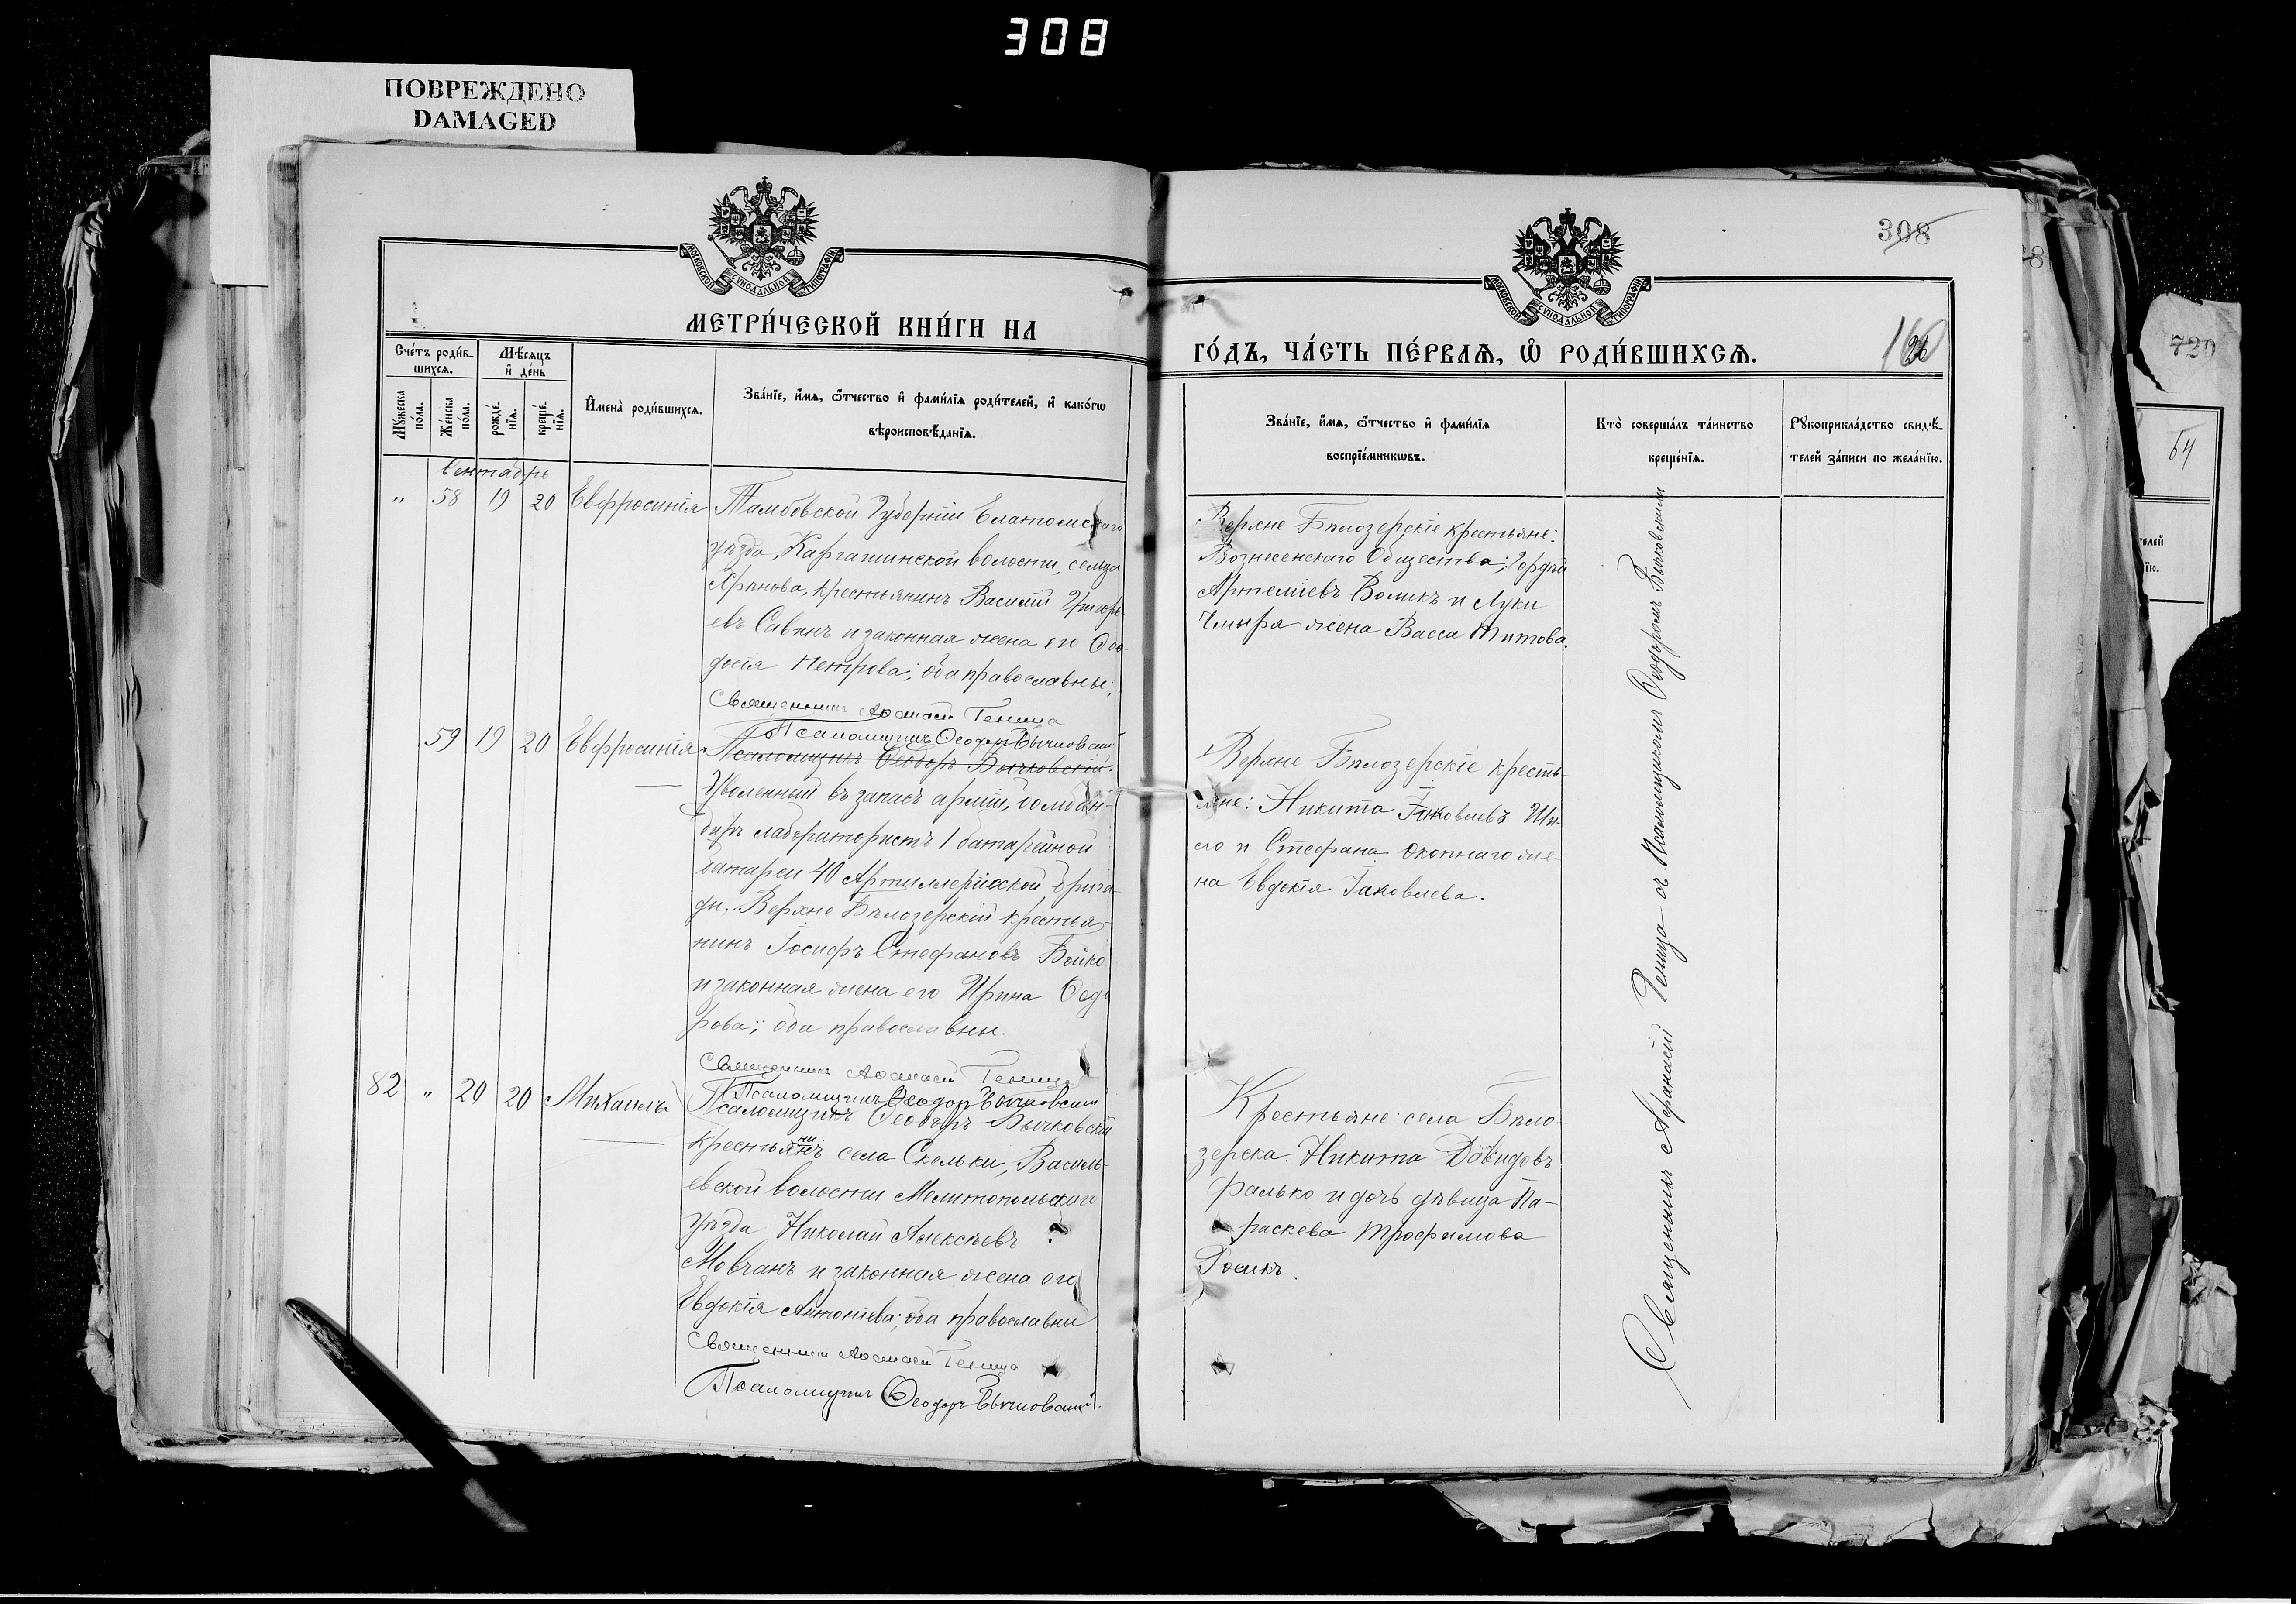 308
ПОВРЕЖДЕНО
DAMAGED
308
МОСКОВСКОЙ СѴНОДАЛЬНОЙ ТИПОГРАФІИ
МОСКОВСКОЙ СѴНОДАЛЬНОЙ ТИПОГРАФІИ
МЕТРИ́ЧЕСКОЙ КНИ́ГИ НА
ГО́ДЪ, ЧА́СТЬ ПЕ́РВАѦ, Ѽ РОДИ́ВШИХСѦ.
26
Сче́тъ роди́в-
шихсѧ.
Мѣ́сѧцъ
и҆ де́нь
Мꙋ́жеска
по́ла.
Же́нска
по́ла.
рожде́-
нїѧ.
креще́-
нїѧ.
И҆мена̀ роди́вшихсѧ.
Зва́нїе, и҆́мѧ, ѻ҆́тчество и҆ фами́лїѧ роди́телей, и҆ како́гѡ
вѣроисповѣ́данїѧ.
Зва́нїе, и҆́мѧ, ѻ҆́тчество и҆ фами́лїѧ
воспрїе́мникѡвъ.
Кто̀ соверша́лъ та́инство
креще́нїѧ.
Рꙋкоприкла́дство свидѣ́-
телей за́писи по жела́нїю.
Сентябрь
" 58 19 20 Евфросинія
Тамбовской Губерніи Елатомскаго
уѣзда, Каргашинской волости, сельца
крестьянинъ Василій Григорь-
евъ Савинъ и законная жена его Ѳео-
досія Петрова; оба православны;
Священникъ Аѳанасій Геница
Псаломщикъ Ѳеодоръ Бычковскій
Верхне Бѣлозерскіе крестьяне:
Вознесенскаго Общества; Гордѣй
Артеміевъ Воликъ и Луки
Чмыря жена Васса Титова.
59 19 20 Евфросинія
Псаломщикъ Ѳеодоръ Бычковскій.
Уволенный въ запасъ арміи, бомбан-
диръ лаборатористъ 1 батарейной
батареи 40 Артиллерійской брига-
ды, Верхне Бѣлозерскій крестья-
нинъ Іосифъ Стефановъ Бойко
и законная жена его Ирина Ѳедо-
рова; оба православны.
Священникъ Аѳанасій Геница
Псаломщикъ Ѳеодоръ Бычковскій
Верхне Бѣлозерскіе кресть-
яне: Никита Іаковлевъ Ши-
ло и Стефана Окопнаго же-
на Евдокія Іаковлева.
82 " 20 20 Михаилъ
Псаломщикъ Ѳеодоръ Бычковскій
крестьянинъ села Скельки, Василь-
евской волости Мелитопольскаго
уѣзда Николай Алексѣевъ
Мовчанъ и законная жена его
Евдокія Антоніева; оба православны
Священникъ Аѳанасій Геница
Псаломщикъ Ѳеодоръ Бычковскій.
Крестьяне села Бѣло-
зерска: Никита Давидовъ
Фалько и дочь дѣвица Па-
раскева Трофимова
Священникъ Аѳанасій Геница съ Псаломщикомъ Ѳеодоромъ Бычковскимъ
720
64